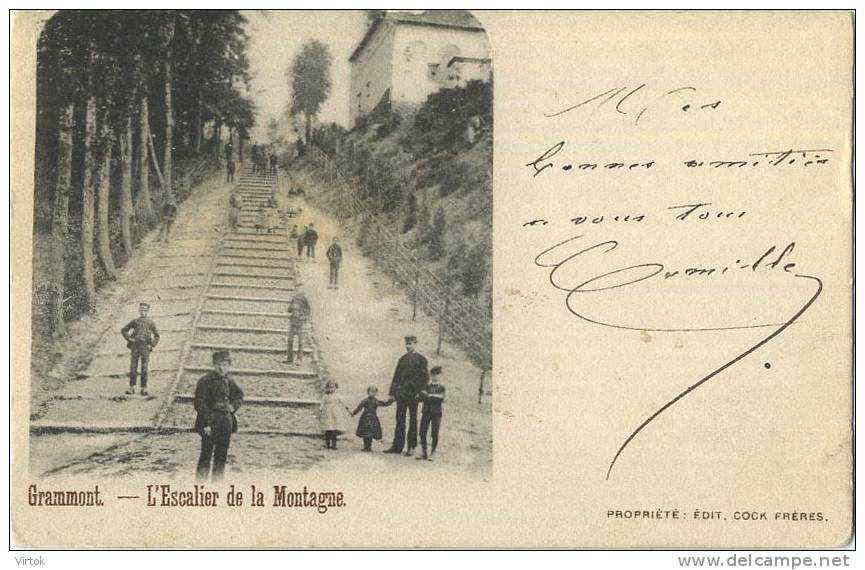 Mes
bonnes amitiés
a vous tous
Camille
Grammont. — L'Escalier de la Montagne.
PROPRIÉTÉ : ÉDIT. COCK FRÈRES.
Virtok
www.delcampe.net